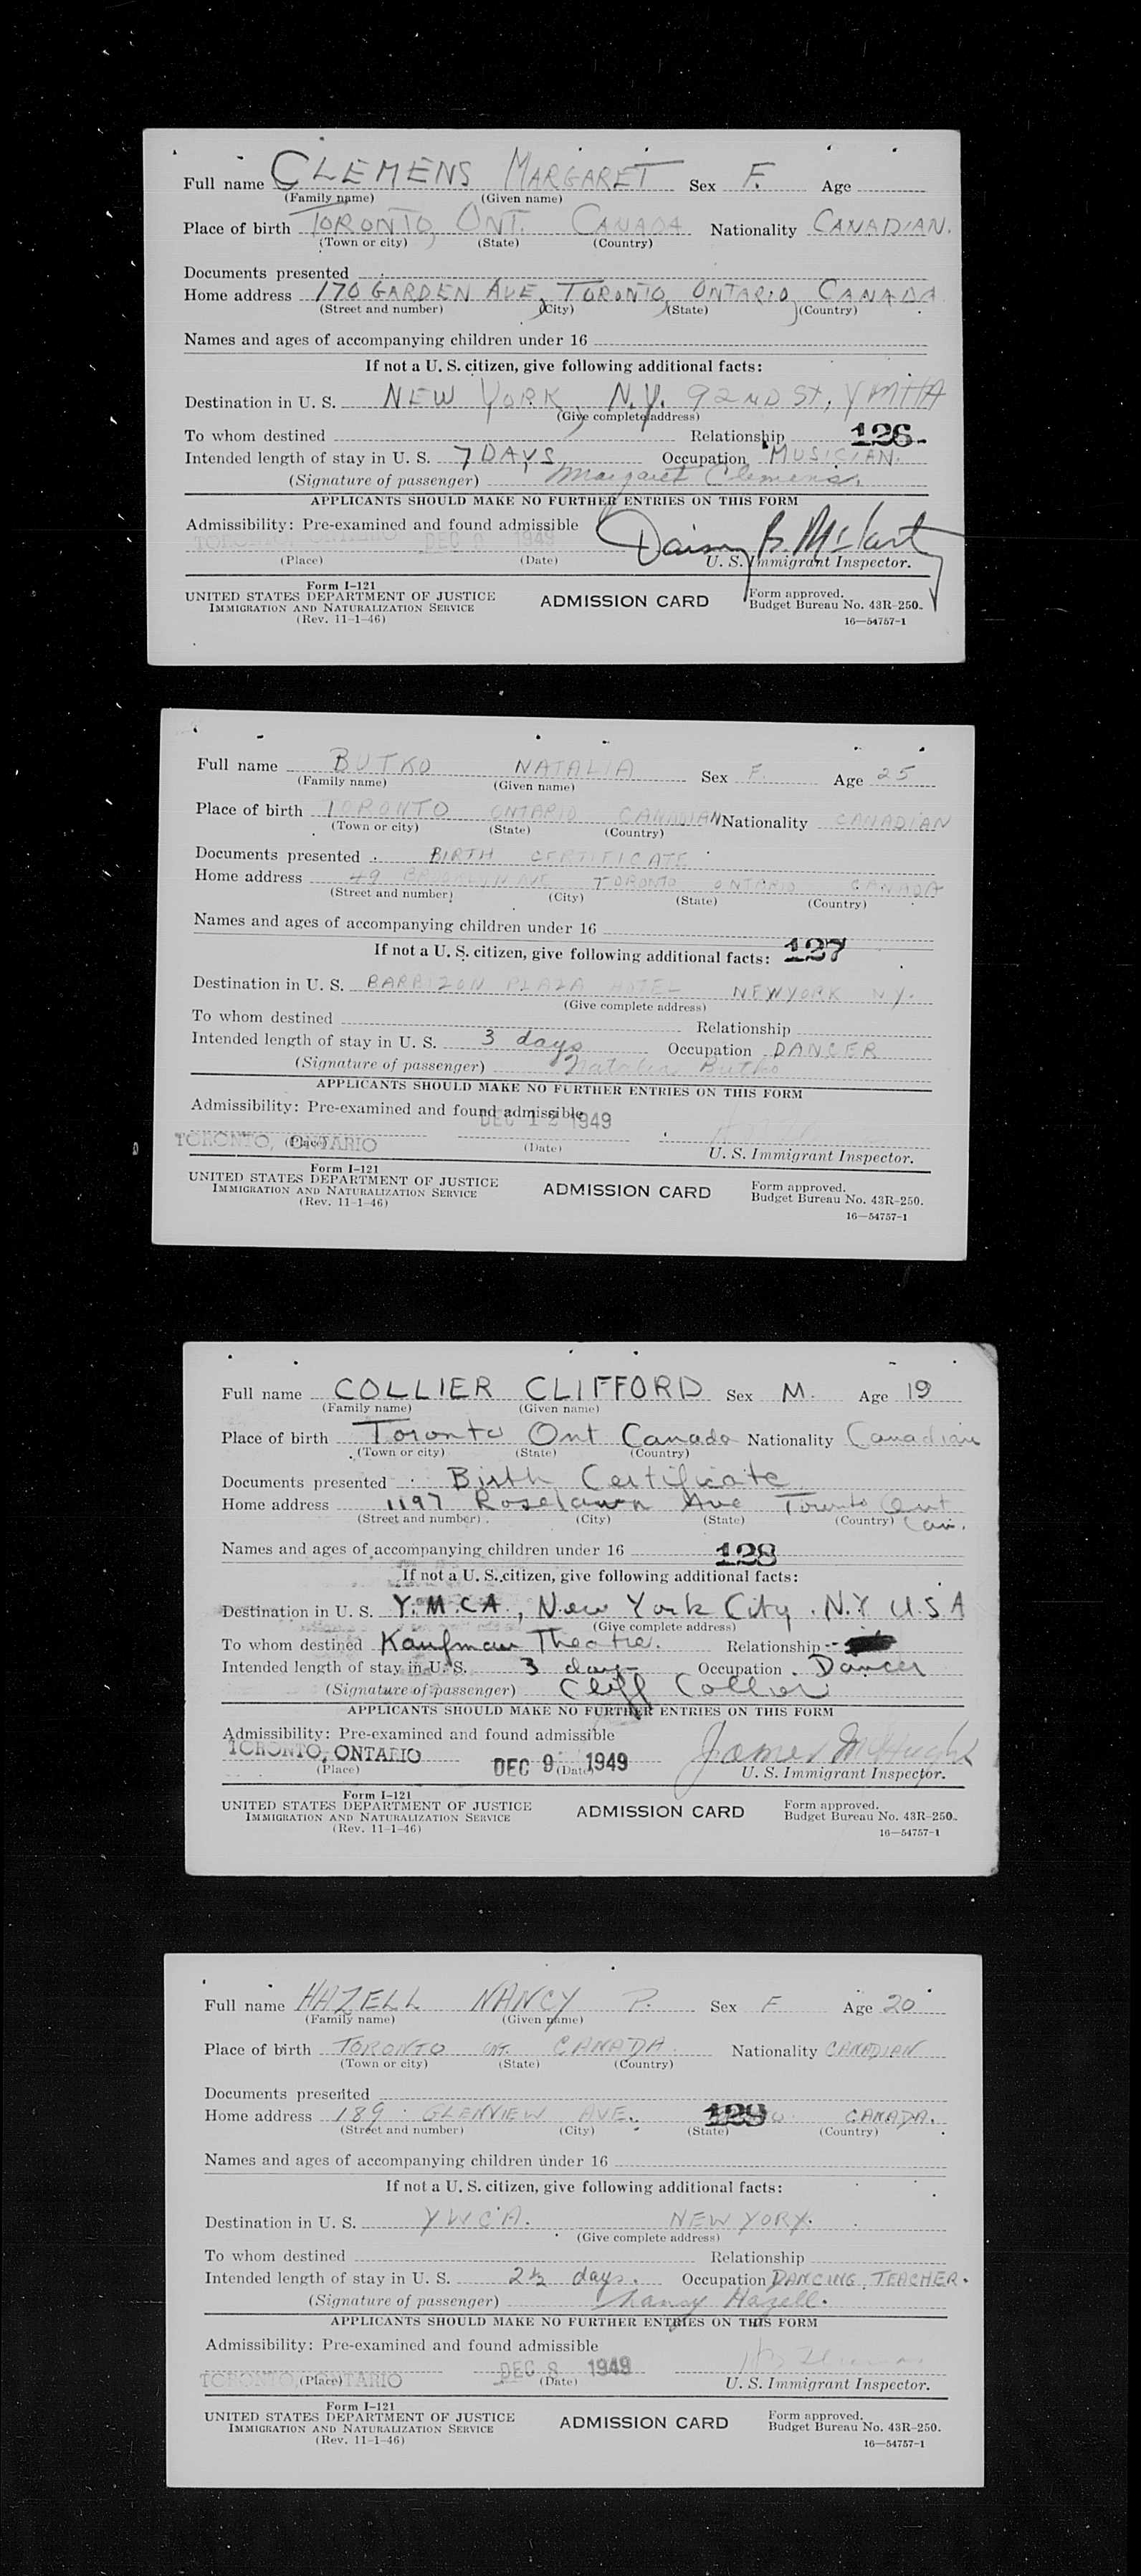 Full name CLEMENS MARGARET Sex F. Age
(Family name) (Given name)
Place of birth TORONTO, ONT. CANADA Nationality CANADIAN.
(Town or city) (State) (Country)
Documents presented
Home address 170 GARDEN AVE, TORONTO, ONTARIO, CANADA
(Street and number) (City) (State) (Country)
Names and ages of accompanying children under 16
If not a U. S. citizen, give following additional facts:
Destination in U. S. NEW YORK, N.Y. 92ND ST, YMHA
(Give complete address)
To whom destined Relationship 126
Intended length of stay in U. S. 7 DAYS Occupation MUSICIAN.
(Signature of passenger) Margaret Clemens.
APPLICANTS SHOULD MAKE NO FURTHER ENTRIES ON THIS FORM
Admissibility: Pre-examined and found admissible
TORONTO, ONTARIO DEC 1949 Daisy B.
(Place) (Date) U. S. Immigrant Inspector.
Form I-121
UNITED STATES DEPARTMENT OF JUSTICE
IMMIGRATION AND NATURALIZATION SERVICE
(Rev. 11-1-46)
ADMISSION CARD
Form approved.
Budget Bureau No. 43R-250.
16—54757-1
Full name BUTKO NATALIA Sex F. Age 25
(Family name) (Given name)
Place of birth TORONTO ONTARIO CANADIAN Nationality CANADIAN
(Town or city) (State) (Country)
Documents presented BIRTH CERTIFICATE
Home address 49 BROOKLYN AVE TORONTO ONTARIO CANADA
(Street and number) (City) (State) (Country)
Names and ages of accompanying children under 16
If not a U. S. citizen, give following additional facts: 127
Destination in U. S. BARBIZON PLAZA HOTEL NEW YORK N.Y.
(Give complete address)
To whom destined Relationship
Intended length of stay in U. S. 3 days Occupation DANCER
(Signature of passenger) Natalia Butko
APPLICANTS SHOULD MAKE NO FURTHER ENTRIES ON THIS FORM
Admissibility: Pre-examined and found admissible
DEC 12 1949
TORONTO, ONTARIO
(Place) (Date) U. S. Immigrant Inspector.
Form I-121
UNITED STATES DEPARTMENT OF JUSTICE
IMMIGRATION AND NATURALIZATION SERVICE
(Rev. 11-1-46)
ADMISSION CARD
Form approved.
Budget Bureau No. 43R-250.
16—54757-1
Full name COLLIER CLIFFORD Sex M. Age 19
(Family name) (Given name)
Place of birth Toronto Ont Canada Nationality Canadian
(Town or city) (State) (Country)
Documents presented Birth Certificate
Home address 1197 Roselawn Ave Toronto Ont
(Street and number) (City) (State) (Country) Can.
Names and ages of accompanying children under 16 128
If not a U. S. citizen, give following additional facts:
Destination in U. S. Y.M.C.A., New York City. N.Y U.S.A
(Give complete address)
To whom destined Kaufman Theatre. Relationship
Intended length of stay in U. S. 3 days Occupation Dancer
(Signature of passenger) Cliff Collier
APPLICANTS SHOULD MAKE NO FURTHER ENTRIES ON THIS FORM
Admissibility: Pre-examined and found admissible
TORONTO, ONTARIO DEC 9 1949 James McHugh
(Place) (Date) U. S. Immigrant Inspector.
Form I-121
UNITED STATES DEPARTMENT OF JUSTICE
IMMIGRATION AND NATURALIZATION SERVICE
(Rev. 11-1-46)
ADMISSION CARD
Form approved.
Budget Bureau No. 43R-250.
16—54757-1
Full name HAZELL NANCY P. Sex F Age 20
(Family name) (Given name)
Place of birth TORONTO ONT. CANADA. Nationality CANADIAN
(Town or city) (State) (Country)
Documents presented
Home address 189 GLENVIEW AVE. 129 CANADA.
(Street and number) (City) (State) (Country)
Names and ages of accompanying children under 16
If not a U. S. citizen, give following additional facts:
Destination in U. S. YWCA. NEW YORK.
(Give complete address)
To whom destined Relationship
Intended length of stay in U. S. 2½ days. Occupation DANCING TEACHER.
(Signature of passenger) Nancy Hazell.
APPLICANTS SHOULD MAKE NO FURTHER ENTRIES ON THIS FORM
Admissibility: Pre-examined and found admissible
TORONTO, ONTARIO DEC 8 1949
(Place) (Date) U. S. Immigrant Inspector.
Form I-121
UNITED STATES DEPARTMENT OF JUSTICE
IMMIGRATION AND NATURALIZATION SERVICE
(Rev. 11-1-46)
ADMISSION CARD
Form approved.
Budget Bureau No. 43R-250.
16—54757-1